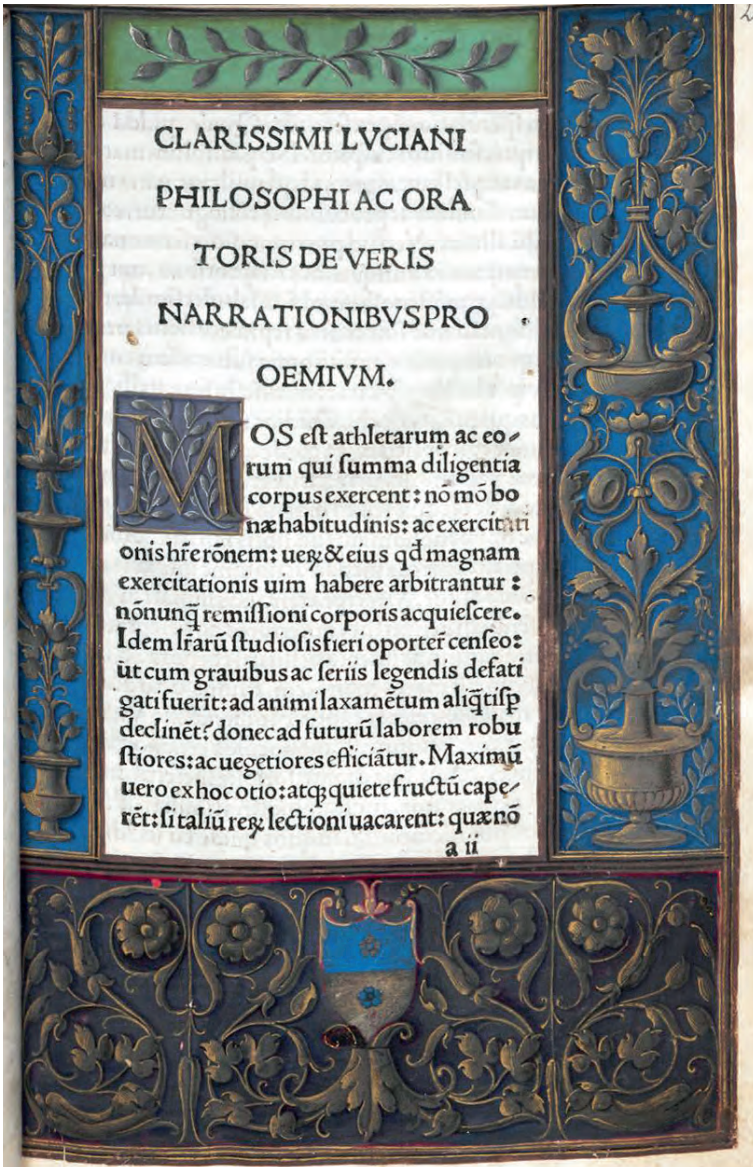 CLARISSIMI LVCIANI
PHILOSOPHI AC ORA
TORIS DE VERIS
NARRATIONIBVS PRO
OEMIVM.
MOS eſt athletarum ac eo-
rum qui ſumma diligentia
corpus exercent: nō mō bo
næ habitudinis: ac exercitati
onis hr̃e rōnem: ueꝝ & eius qđ magnam
exercitationis uim habere arbitrantur:
nōnunq̃ remiſſioni corporis acquieſcere.
Idem lr̃arū ſtudioſis fieri oporter̃ cenſeo:
ut cum grauibus ac ſeriis legendis defati
gati fuerīt: ad animi laxamētum aliq̃tiſꝑ
declinēt? donec ad futurū laborem robu
ſtiores: ac uegetiores efficiātur. Maximū
uero ex hoc otio: atqꝫ quiete fructū cape-
rēt: ſi taliū reꝝ lectioni uacarent: quæ nō
a ii